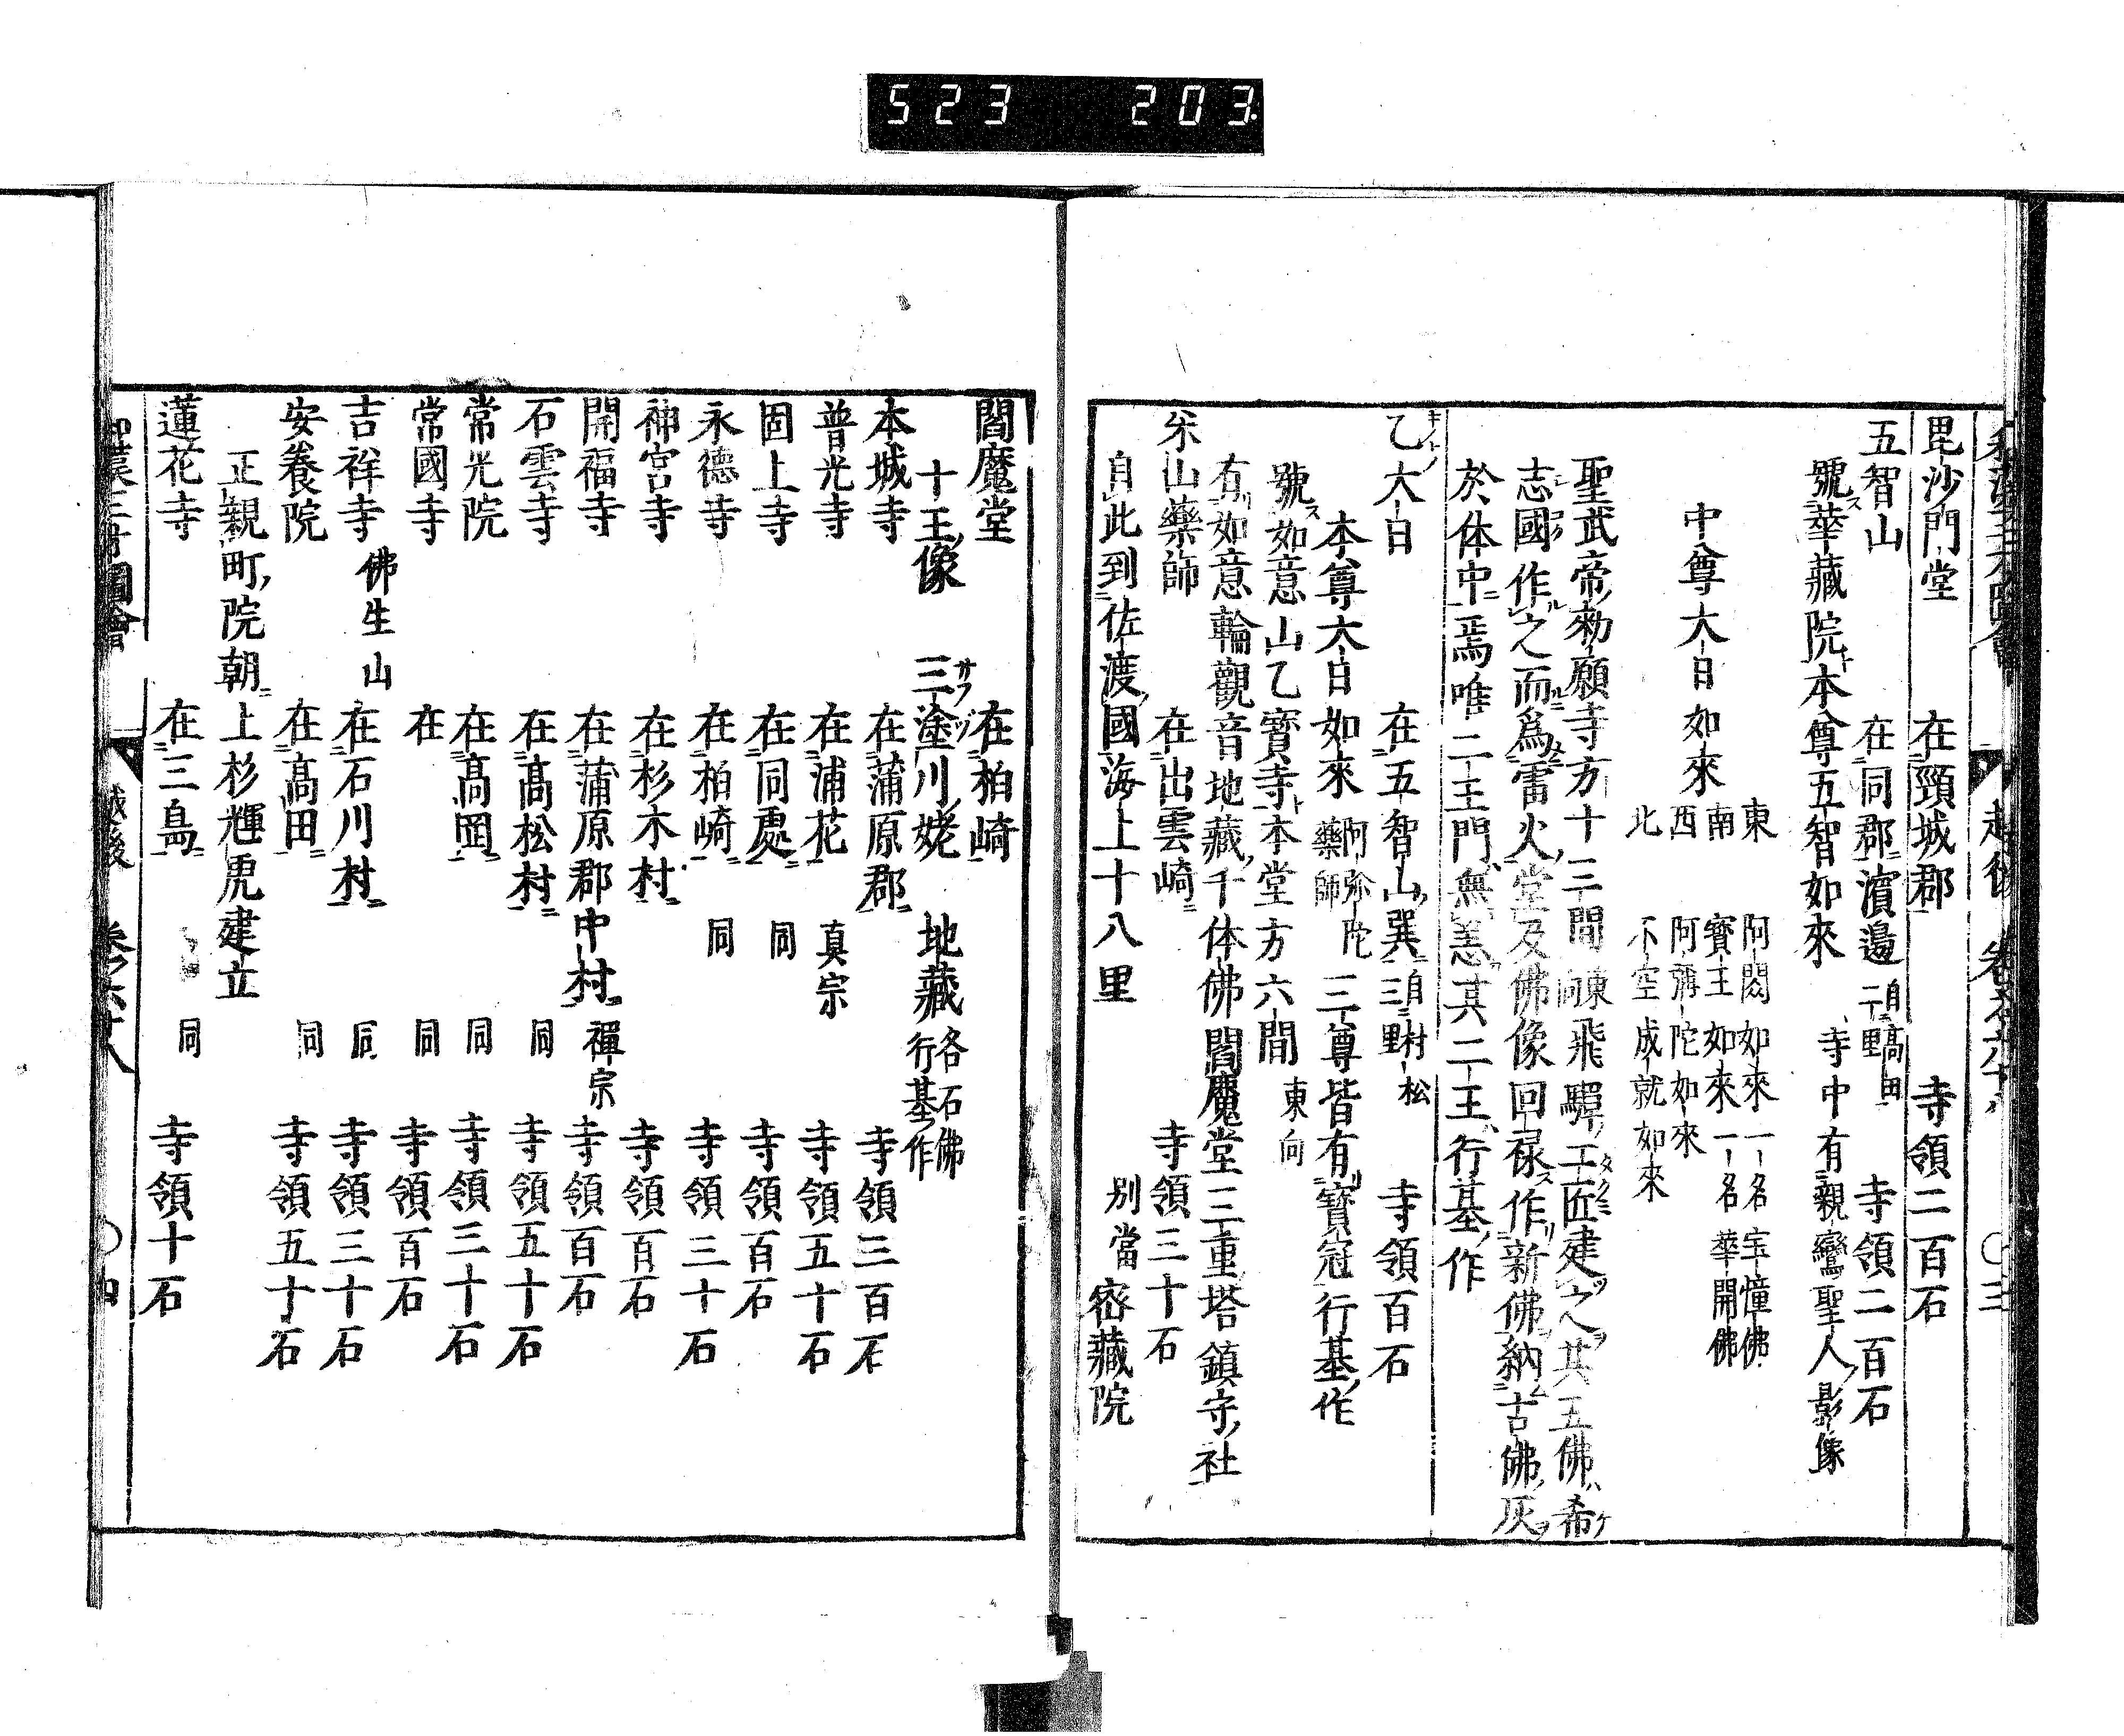 523 203
越後 〇三
毘沙門堂 在頸城郡 寺領二百石
五智山 在同郡濵邊 自高田二里 寺領二百石
號ス華藏院ト本尊五智如來 寺中有親鸞聖人ノ影像
東 阿閦如來 一名宝憧佛
南 寳王如來 一名華開佛
中尊大日如來
西 阿彌陀如來
北 不空成就如來
聖武帝ノ勅願寺方十三間 東向 飛驒ノ工匠タクミ建ツ之ヲ其五佛ハ希ケ
志國作ル之而ルニ爲雷火ノ堂及佛像回禄ス作リ新佛ヲ納ム古佛ノ灰ヲ
於体中ニ焉唯二王門無恙其二王ハ行基ノ作
乙キノトノ大日 在五智山ノ巽ニ 自村松三里 寺領百石
本尊大日如來 阿弥陀 藥師 三尊皆有リ寳冠行基ノ作
號ス如意山乙寳寺ト本堂方六間 東向
有リ如意輪觀音地藏ノ千体佛閻魔堂三重塔鎮守ノ社
米山藥師 在出雲崎ニ 寺領三十石
自此到佐渡ノ國ニ海上十八里 別當 密藏院
閻魔堂 在柏崎
十王ノ像 三塗サフヅ川ノ姥 地藏 各石佛 行基ノ作
本城寺 在蒲原郡ニ 寺領三百石
普光寺 在浦花ニ 真宗 寺領五十石
固上寺 在同處ニ 同 寺領百石
永德寺 在柏崎ニ 同 寺領三十石
神宮寺 在杉木村ニ 寺領百石
開福寺 在蒲原郡中村ニ 禪宗 寺領百石
石雲寺 在髙松村ニ 同 寺領五十石
常光院 在髙岡ニ 同 寺領三十石
常國寺 在 同 寺領百石
吉祥寺 佛生山 在石川村ニ 同 寺領三十石
安養院 在髙田ニ 同 寺領五十石
正親町ノ院ノ朝ニ上杉輝虎建立
蓮花寺 在三島ニ 同 寺領十石
三才圖會 越後 卷六十八 〇四